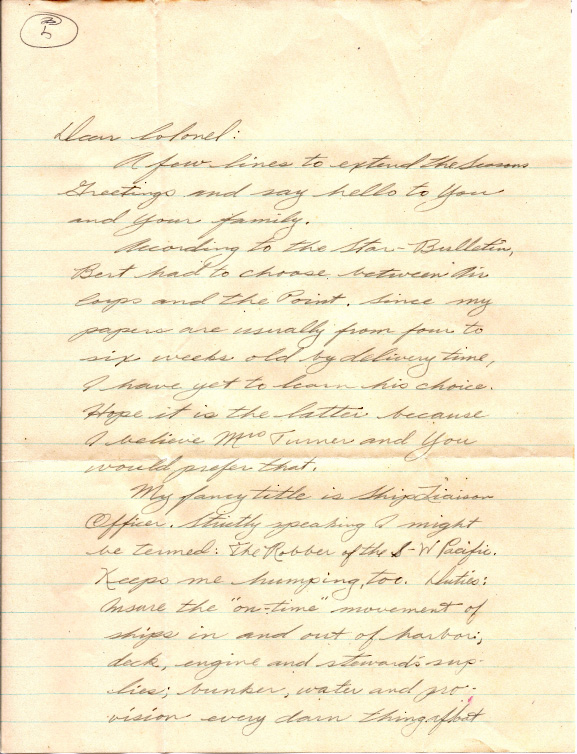 5
Dear Colonel:
A few lines to extend the Seasons
Greetings and say hello to You
and Your family.
According to the Star-Bulletin,
Bert had to choose between Air
Corps and the Point. Since my
papers are usually from four to
six weeks old by delivery time,
I have yet to learn his choice.
Hope it is the latter because
I believe Mrs Turner and You
would prefer that.
My fancy title is Ship Liaison
Officer. Strictly speaking I might
be termed: The Robber of the S-W Pacific.
Keeps me humping, too. Duties:
Insure the "on-time" movement of
ships in and out of harbor;
deck, engine and steward's sup-
lies; bunker, water and pro-
vision every darn thing afloat